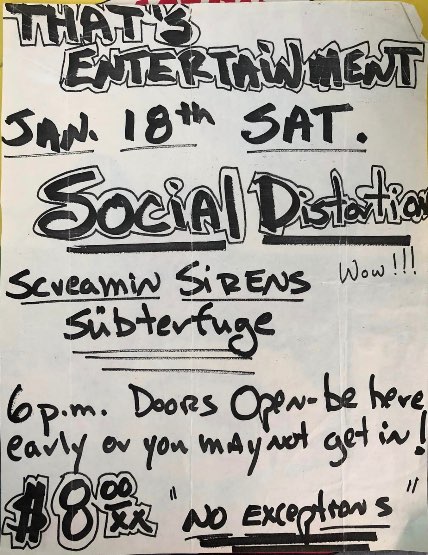 THAT'S
ENTERTAINMENT
JAN. 18th SAT.
Social Distortion
Wow!!!
Screamin SiRENS
Sübterfuge
6 p.m. DOORS OPEN- be here
early or you may not get in!
$8 00/xx "NO Exceptions"